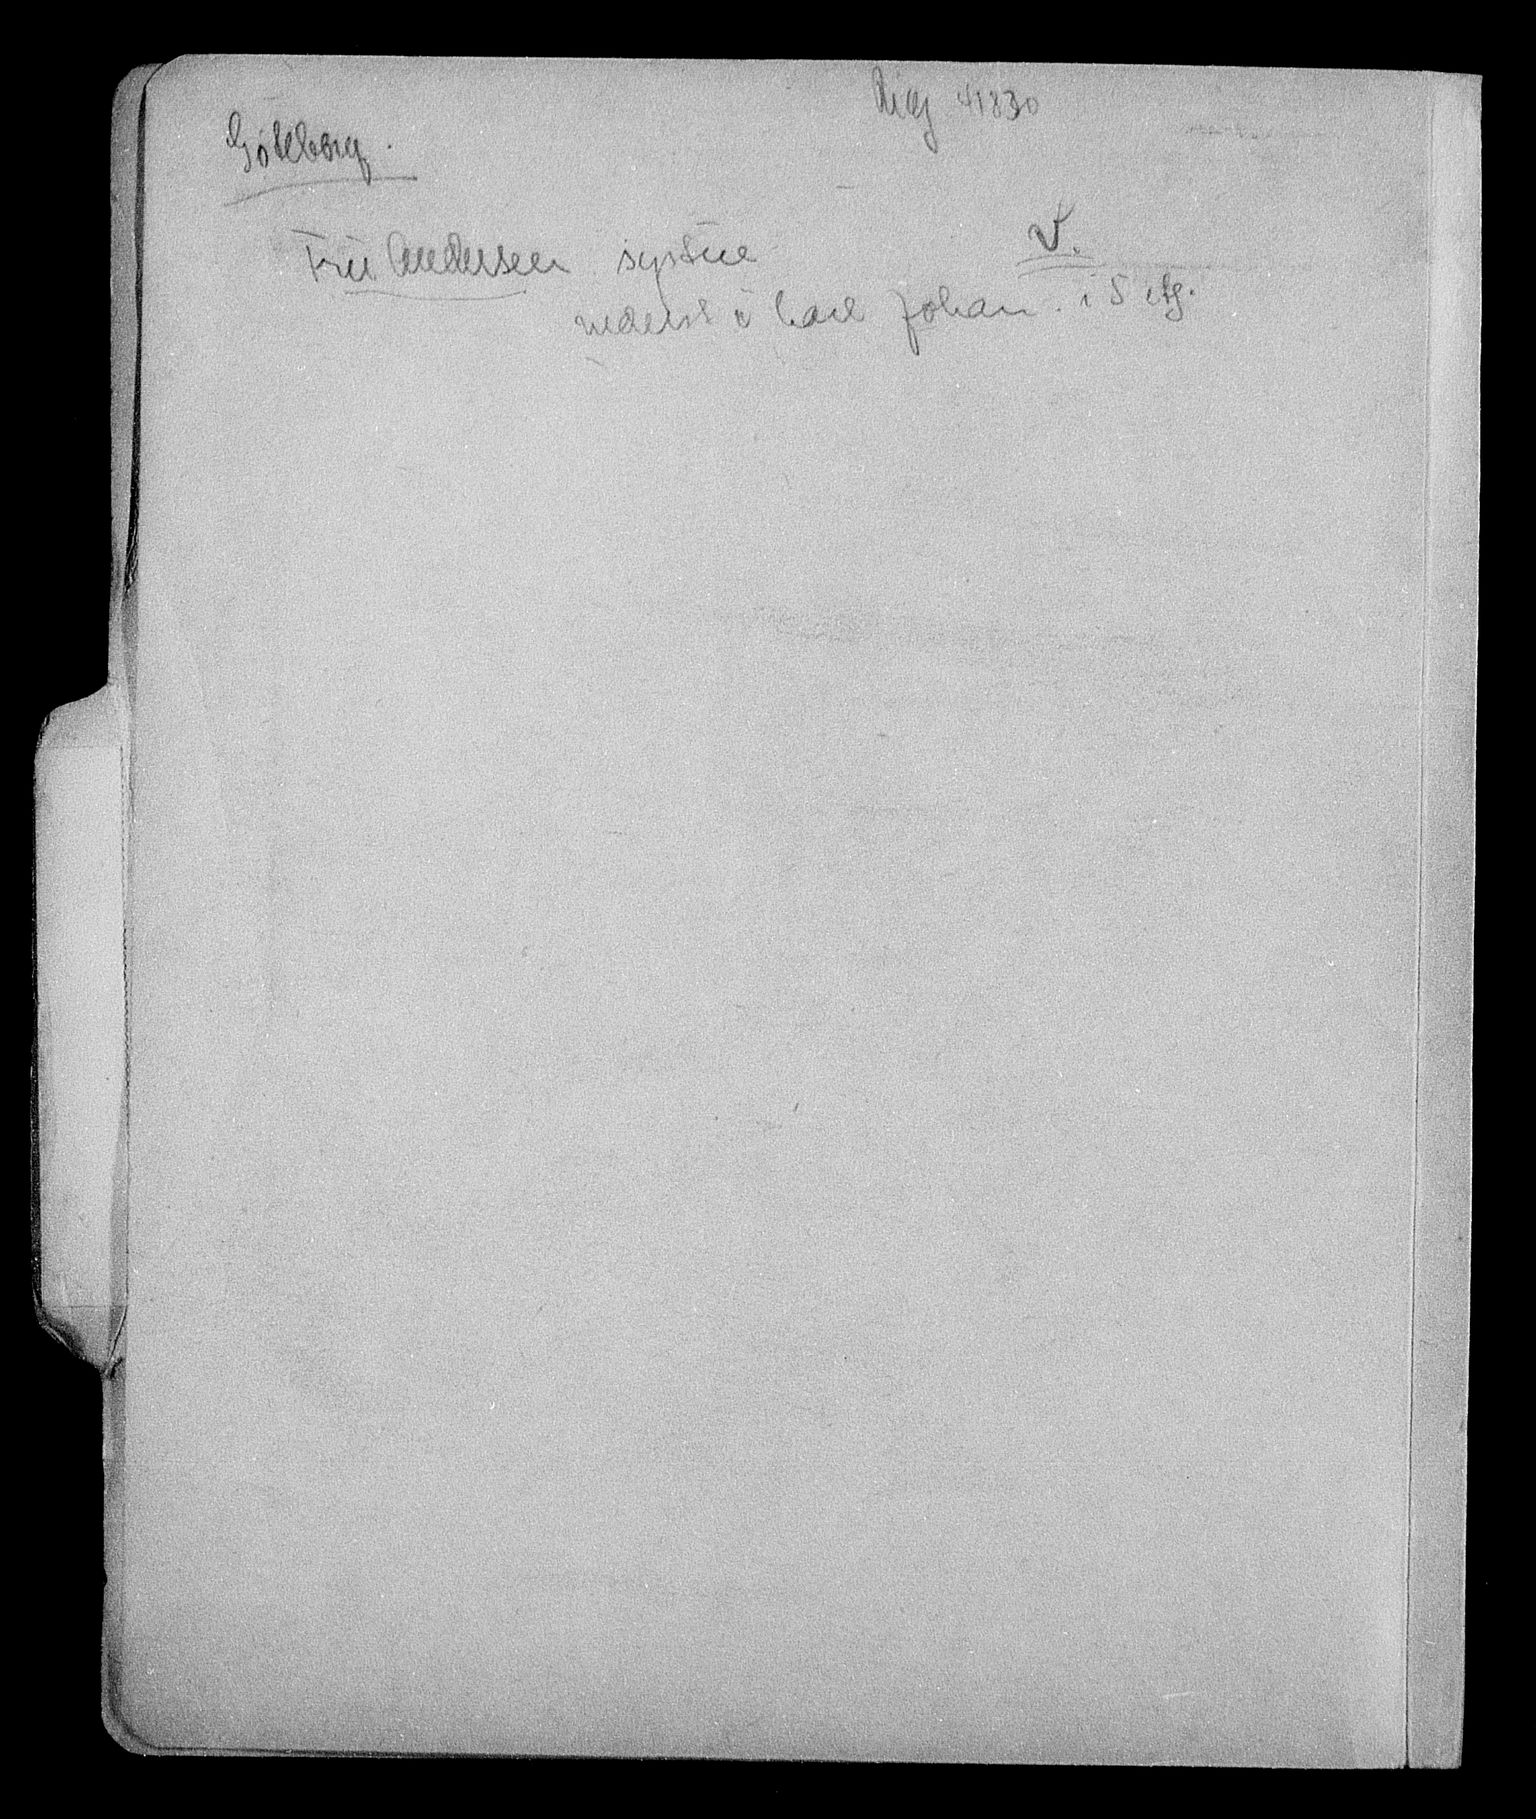 Ring 41830
Göteborg.
Fru Andersen systue V.
nederst i Carl Johan. i 5 etg.